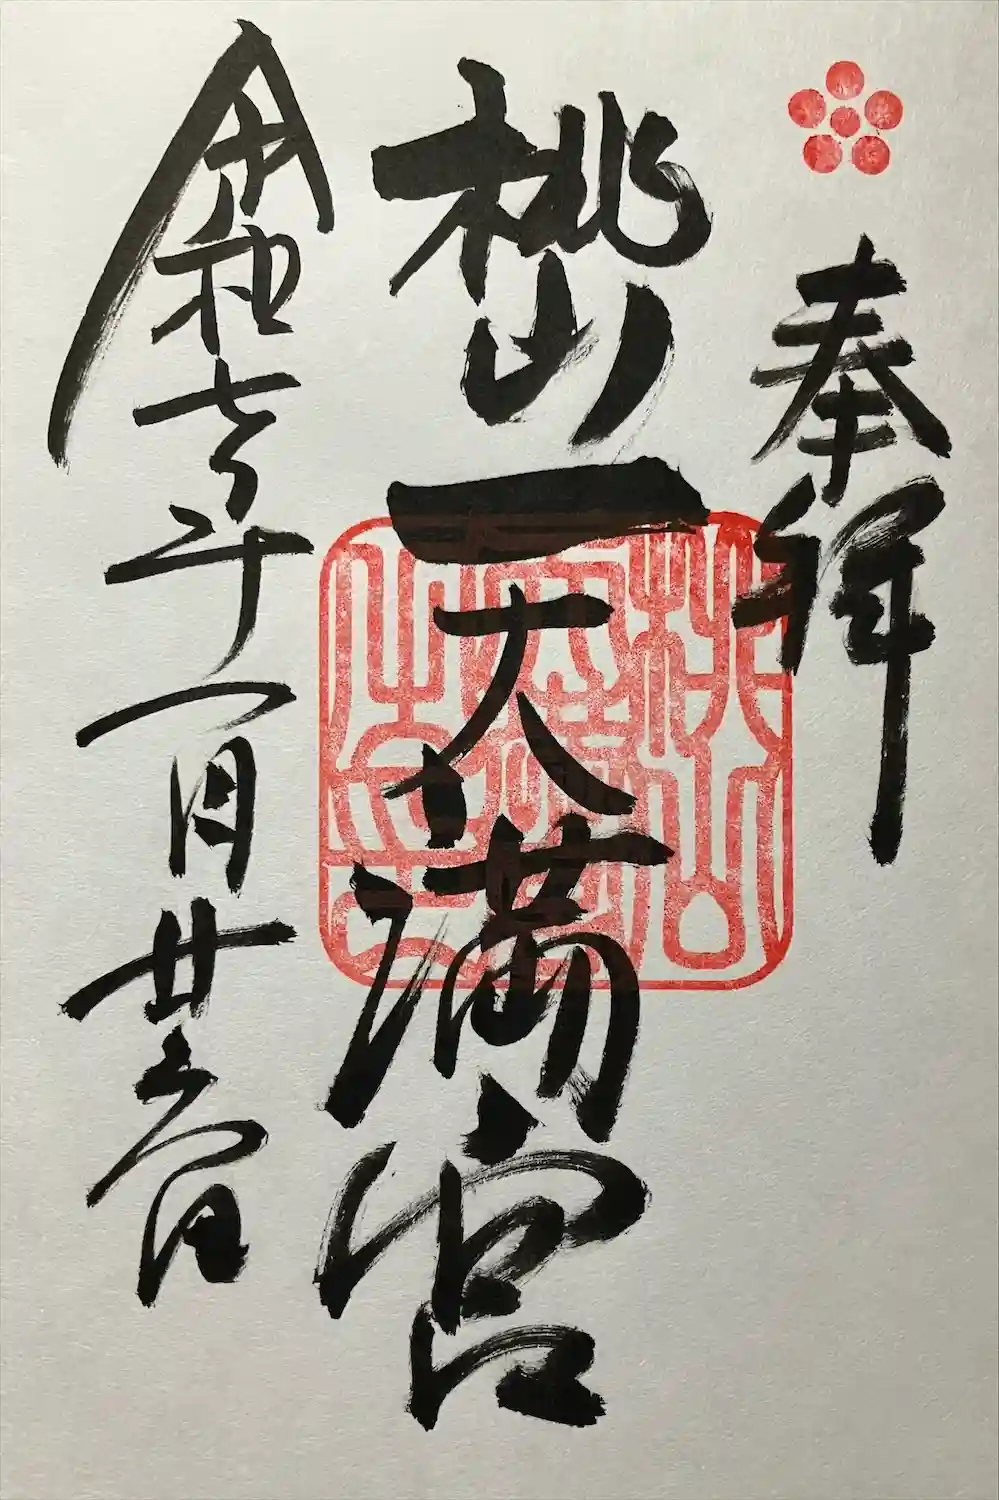 奉拝
桃山天満宮
令和七年一月廿六日
桃山
天満
宮之印